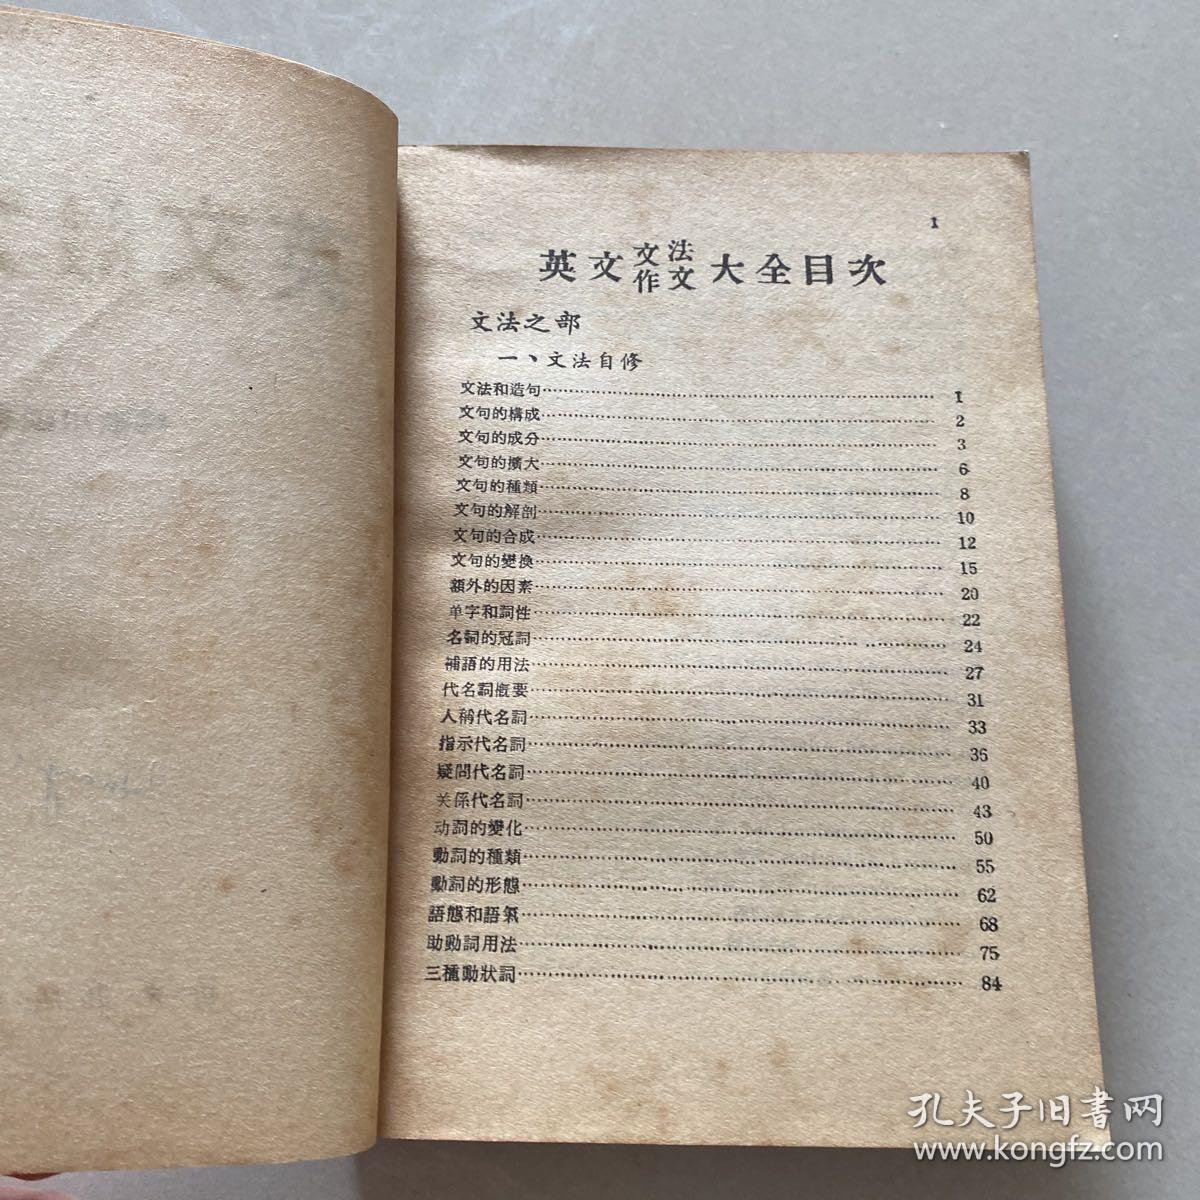 1
英文文法作文大全目次
文法之部
一、文法自修
文法和造句 1
文句的構成 2
文句的成分 3
文句的擴大 6
文句的種類 8
文句的解剖 10
文句的合成 12
文句的變換 15
額外的因素 20
单字和詞性 22
名詞的冠詞 24
補語的用法 27
代名詞概要 31
人稱代名詞 33
指示代名詞 36
疑問代名詞 40
关係代名詞 43
动詞的變化 50
動詞的種類 55
動詞的形態 62
語態和語氣 68
助動詞用法 75
三種動狀詞 84
孔夫子旧書网
www.kongfz.com